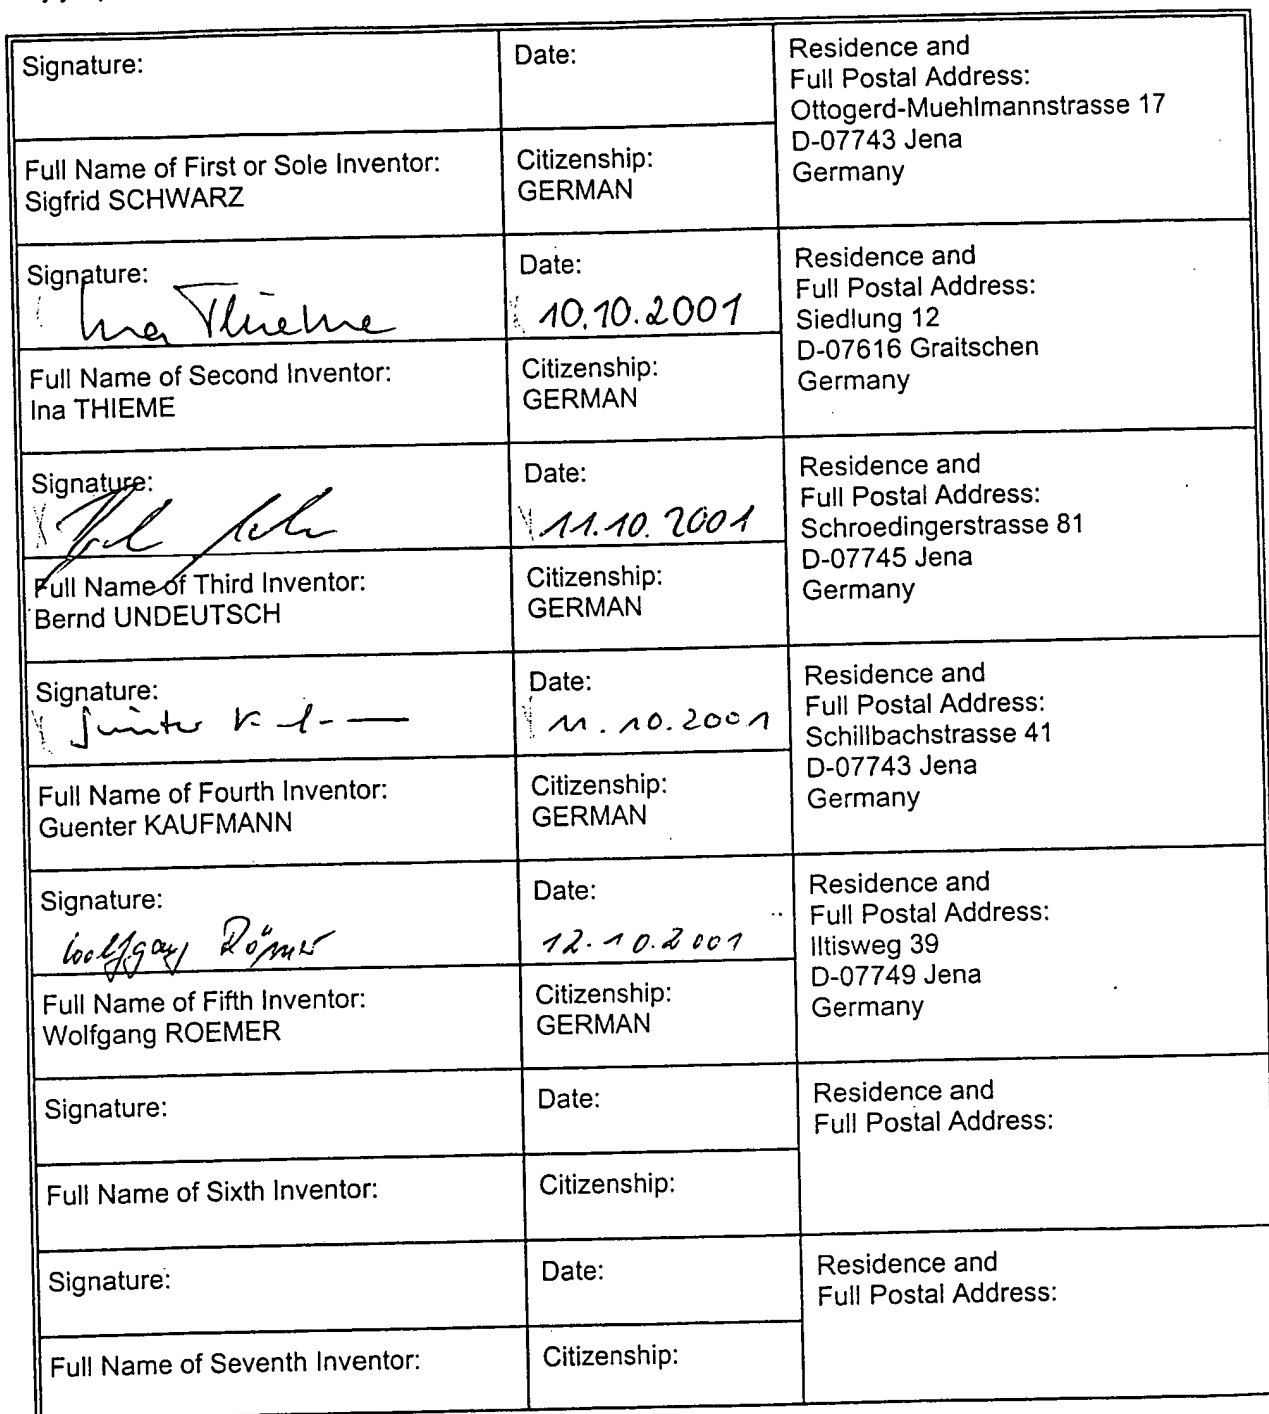 Signature:
Date:
Residence and
Full Postal Address:
Ottogerd-Muehlmannstrasse 17
D-07743 Jena
Germany
Full Name of First or Sole Inventor:
Sigfrid SCHWARZ
Citizenship:
GERMAN
Signature:
Ina Thieme
Date:
10.10.2001
Residence and
Full Postal Address:
Siedlung 12
D-07616 Graitschen
Germany
Full Name of Second Inventor:
Ina THIEME
Citizenship:
GERMAN
Signature:
Date:
11.10.2001
Residence and
Full Postal Address:
Schroedingerstrasse 81
D-07745 Jena
Germany
Full Name of Third Inventor:
Bernd UNDEUTSCH
Citizenship:
GERMAN
Signature:
Günter
Date:
11.10.2001
Residence and
Full Postal Address:
Schillbachstrasse 41
D-07743 Jena
Germany
Full Name of Fourth Inventor:
Guenter KAUFMANN
Citizenship:
GERMAN
Signature:
Wolfgang Römer
Date:
12.10.2001
Residence and
Full Postal Address:
Iltisweg 39
D-07749 Jena
Germany
Full Name of Fifth Inventor:
Wolfgang ROEMER
Citizenship:
GERMAN
Signature:
Date:
Residence and
Full Postal Address:
Full Name of Sixth Inventor:
Citizenship:
Signature:
Date:
Residence and
Full Postal Address:
Full Name of Seventh Inventor:
Citizenship: